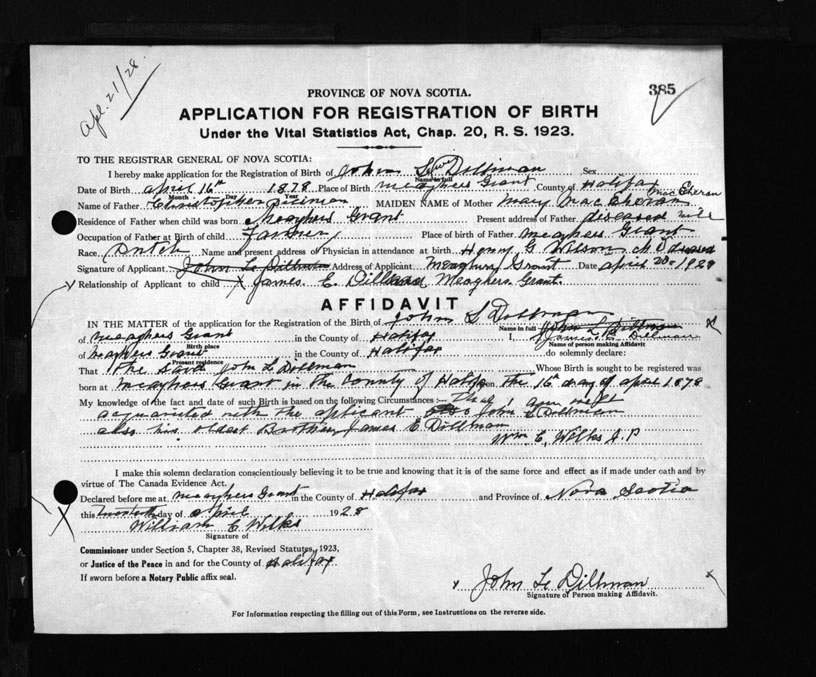 Apl. 21/28.
385
PROVINCE OF NOVA SCOTIA.
APPLICATION FOR REGISTRATION OF BIRTH
Under the Vital Statistics Act, Chap. 20, R. S. 1923.
TO THE REGISTRAR GENERAL OF NOVA SCOTIA:
I hereby make application for the Registration of Birth of John Dillman Sex
Name in full
Date of Birth April 16th 1878 Place of Birth Meaghers Grant County of Halifax
Month Day Year
Name of Father Christopher MAIDEN NAME of Mother Mary Mac
Residence of Father when child was born Meaghers Grant Present address of Father
Occupation of Father at Birth of child Place of birth of Father Meaghers Grant
Race Dutch Name and present address of Physician in attendance at birth Henry G Wilson
Signature of Applicant John L Dillman Address of Applicant Grant Date April 20 1928
Relationship of Applicant to child X James E Dillman Meaghers Grant.
AFFIDAVIT
IN THE MATTER of the application for the Registration of the Birth of John L Dillman
Name in full
of Meaghers Grant in the County of Halifax I, James E Dillman
Birth place Name of person making Affidavit
of Meaghers Grant in the County of Halifax do solemnly declare:
Present residence
That The Said John L Dillman Whose Birth is sought to be registered was
born at Meaghers Grant in the County of Halifax on the 16th day of April 1878
My knowledge of the fact and date of such Birth is based on the following Circumstances:—
acquainted with the aplicant John L Dillman
also his oldest Brother James E Dillman
Wm E, Wilks J.P
I make this solemn declaration conscientiously believing it to be true and knowing that it is of the same force and effect as if made under oath and by
virtue of The Canada Evidence Act.
Declared before me at Meaghers Grant in the County of Halifax and Province of Nova Scotia
this day of April 1928
William E Wilks
Signature of
Commissioner under Section 5, Chapter 38, Revised Statutes, 1923,
or Justice of the Peace in and for the County of Halifax.
If sworn before a Notary Public affix seal.
x John L Dillman
Signature of Person making Affidavit.
For Information respecting the filling out of this Form, see Instructions on the reverse side.